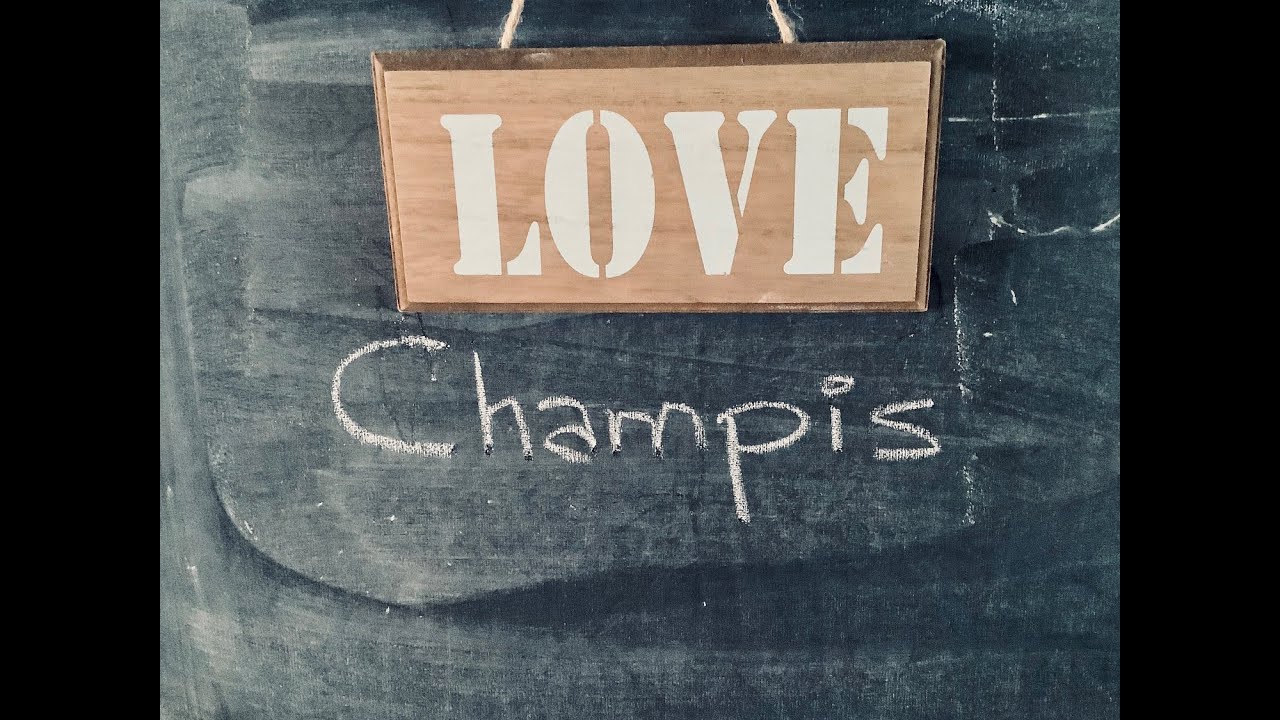 LOVE
Champis